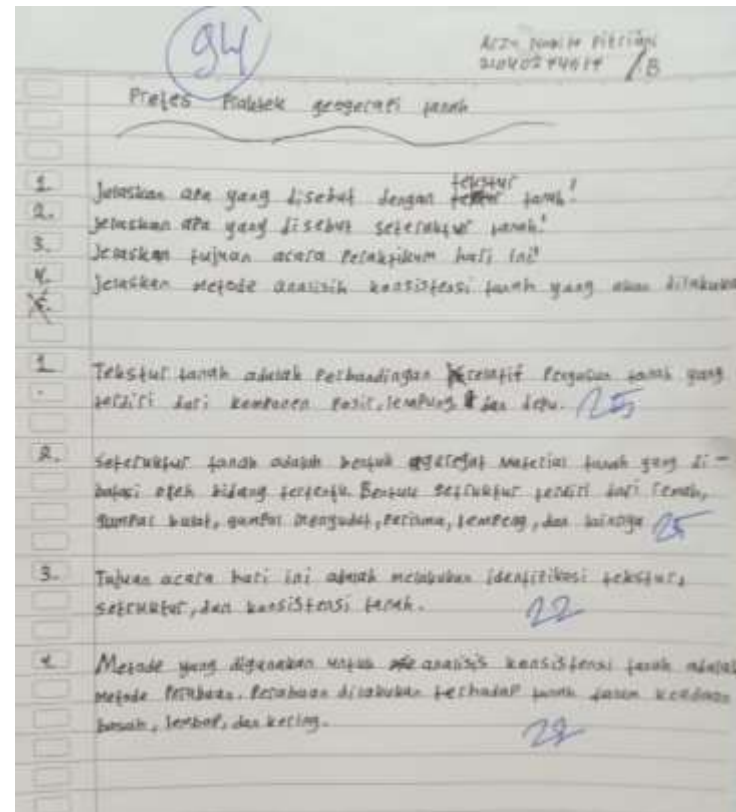 94
Pretes Praktek geogerafi tanah
1. Jelaskan apa yang disebut dengan tekstur tanah!
2. Jelaskan apa yang disebut seteruktur tanah!
3. Jelaskan tujuan acara Peraktikum hari ini!
4. Jelaskan metode analisih konsistensi tanah yang akan dilakukan
1. Tekstur tanah adalah Perbandingan relatif Penyusun tanah yang
terdiri dari komponen Pasir, lempung dan debu. 25
2. Seteruktur tanah adalah bentuk agaregat material tanah yang di-
batasi oleh bidang tertentu. Bentuk setruktur terdiri dari remah,
gumpal bulat, gumpal menyudut, Perisma, lempeng, dan lainnya 25
3. Tujuan acara hari ini adalah melakukan identifikasi tekstur,
setruktur, dan konsistensi tanah. 22
4. Metode yang digunakan untuk analisis konsistensi tanah adalah
metode Perabaan. Perabaan dilakukan terhadap tanah dalam keadaan
basah, lembap, dan kering. 22